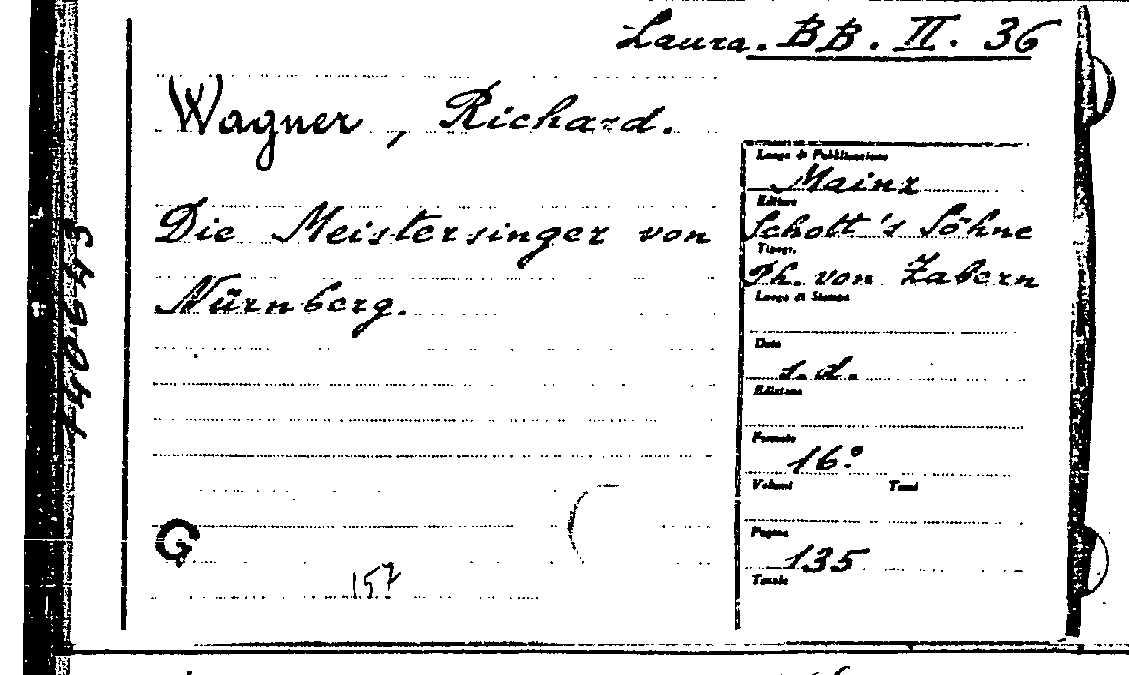 Laura. BB. II. 36
Wagner, Richard.
Die Meistersinger von
Nürnberg.
G
157
Luogo di Pubblicazione
Mainz
Editore
Schott's Söhne
Tipogr.
Ph. von Zabern
Luogo di Stampa
Data
s.d.
Edizione
Formato
16°
Volumi Tomi
Pagine
135
Tavole